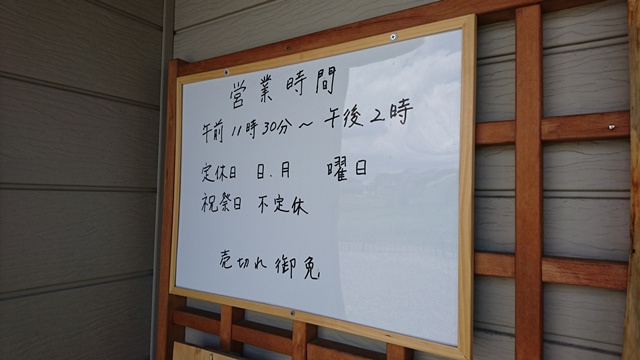 営業時間
午前11時30分～午後2時
定休日 日.月 曜日
祝祭日 不定休
売切れ御免